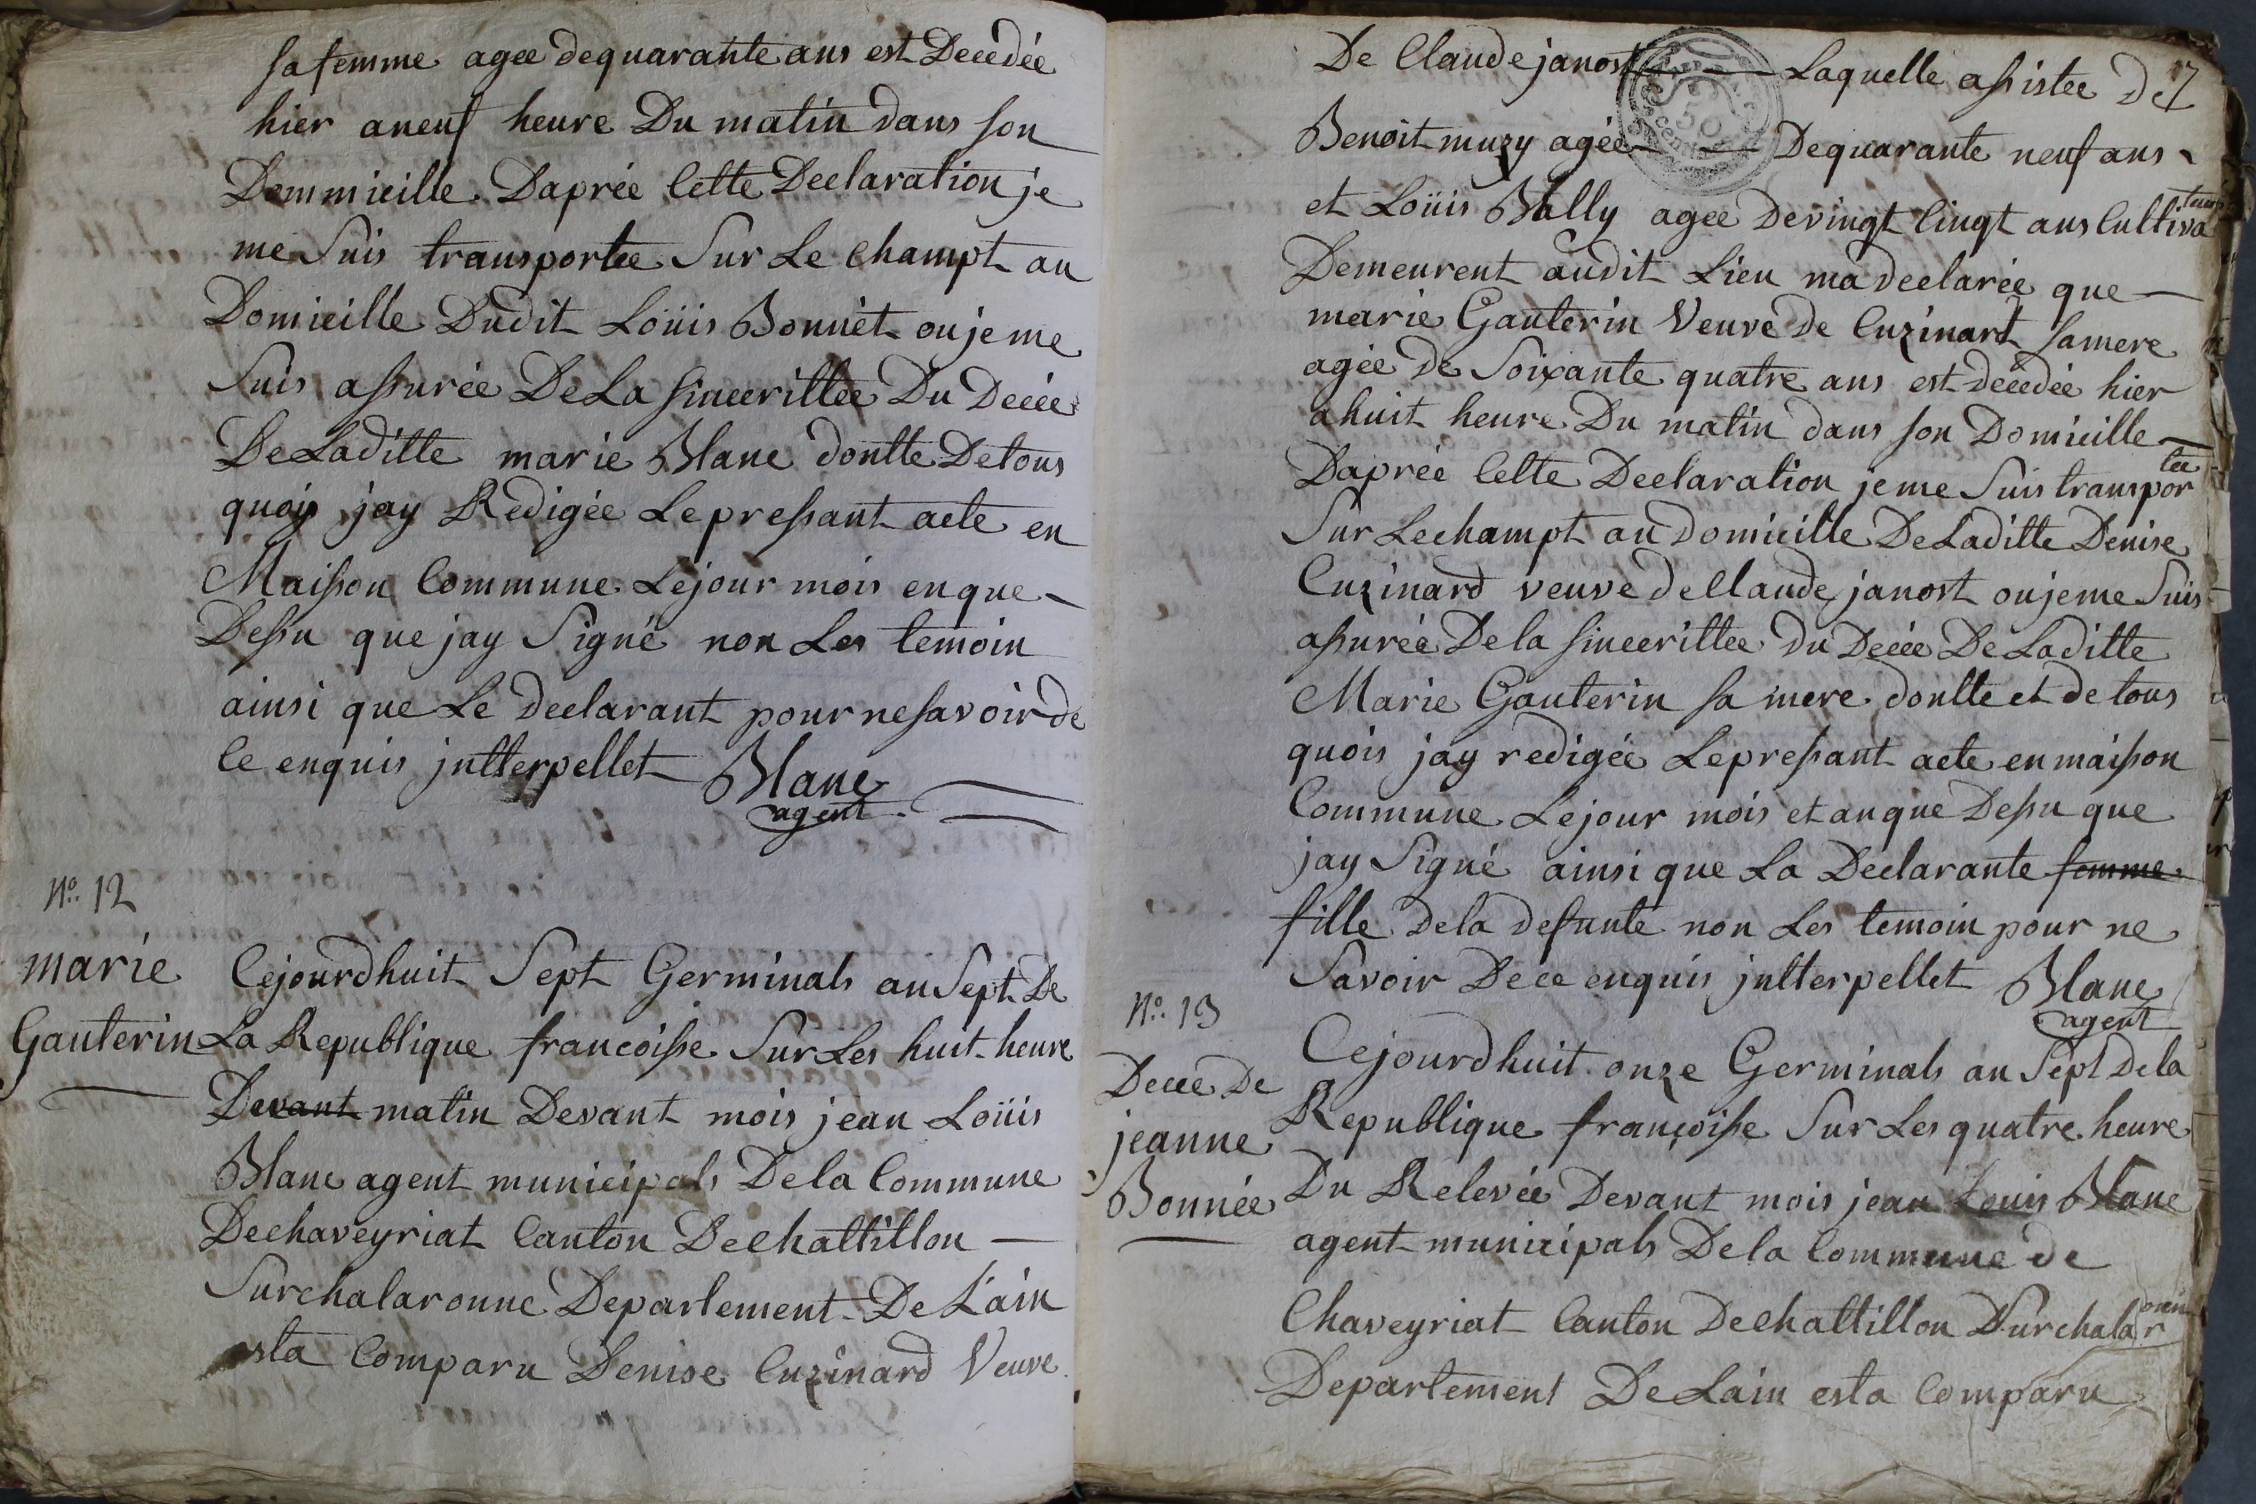 sa femme agee de quarante ans est Decedée
hier a neuf heure Du matin dans son
Dommicille. Daprée Cette Declaration je
me Suis transportee Sur Le champt au
Domicille Dudit Loüis Bonnet ou je me
Suis assurée De La sinceerittee Du Decée
De Laditte marie Blanc dontte De tous
quois jay Redigée Le pressant acte en
Maisson Commune Le jour mois en que
Dessu que jay Signé non Les temoin
ainsi que Le declarant pour ne savoir de
Ce enquis jntterpellet Blanc
agent
No. 12
marie
Gauterin
Cejourdhuit Sept Germinals an Sept De
La Republique francoisse Sur Les huit heure
Devant matin Devant mois jean Loüis
Blanc agent municipals De la Commune
De chaveyriat Canton De Chattillon
Sur chalaronne Departement De L'ain
esta Comparu Denise Cuzinard Veuve
De Claude janost Laquelle assistee De
17
50
Benoit muzy agée De quarante neuf ans
et Loüis Bally agee De vingt Cinqt ans Cultivateurs
Demeurent audit Lieu ma declarée que
marie Gauterin Veuve de Cuzinart sa mere
agée de Soixante quatre ans est decedée hier
a huit heure Du matin dans son Domicille
Daprée Cette Declaration je me Suis transportee
Sur Le champt au Domicille De Laditte Denise
Cuzinard veuve de Claude janost ou je me Suis
assurée De la sinceerittee du Decée De Laditte
Marie Gauterin sa mere dontte et de tous
quois jay redigée Le pressant acte en maisson
Commune Le jour mois et an que Dessu que
jay Signé ainsi que La Declarante femme
fille De la defunte non Les temoin pour ne
Savoir De ce enquis jntterpellet Blanc
agent
No. 13
Decee De
jeanne
Bonnée
Cejourdhuit onze Germinals an Sept De la
Republique françoisse Sur Les quatre heure
Du Relevée Devant mois jean Louis Blanc
agent municipals De la Commune de
Chaveyriat Canton De Chattillon Surchalaronne
Departement De Lain esta Comparu